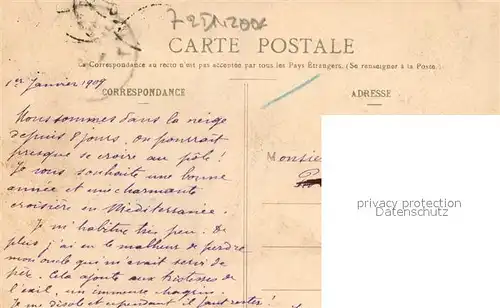 CARTE POSTALE
La Correspondance au recto n'est pas acceptée par tous les Pays Étrangers. (Se renseigner à la Poste.)
1er Janvier 1909
CORRESPONDANCE
ADRESSE
Nous sommes dans la neige
depuis 8 jours, on pourrait
presque se croire au pôle!
Je vous souhaite une bonne
année et une charmante
croisière en Méditerranée.
Je m'habitue très peu. De
plus j'ai eu le malheur de perdre
mon oncle qui m'avait servi de
père. Cela ajoute aux tristesses de
l'exil, un immense chagrin.
Je me désole et cependant il faut rester!
Monsie
privacy protection
Datenschutz